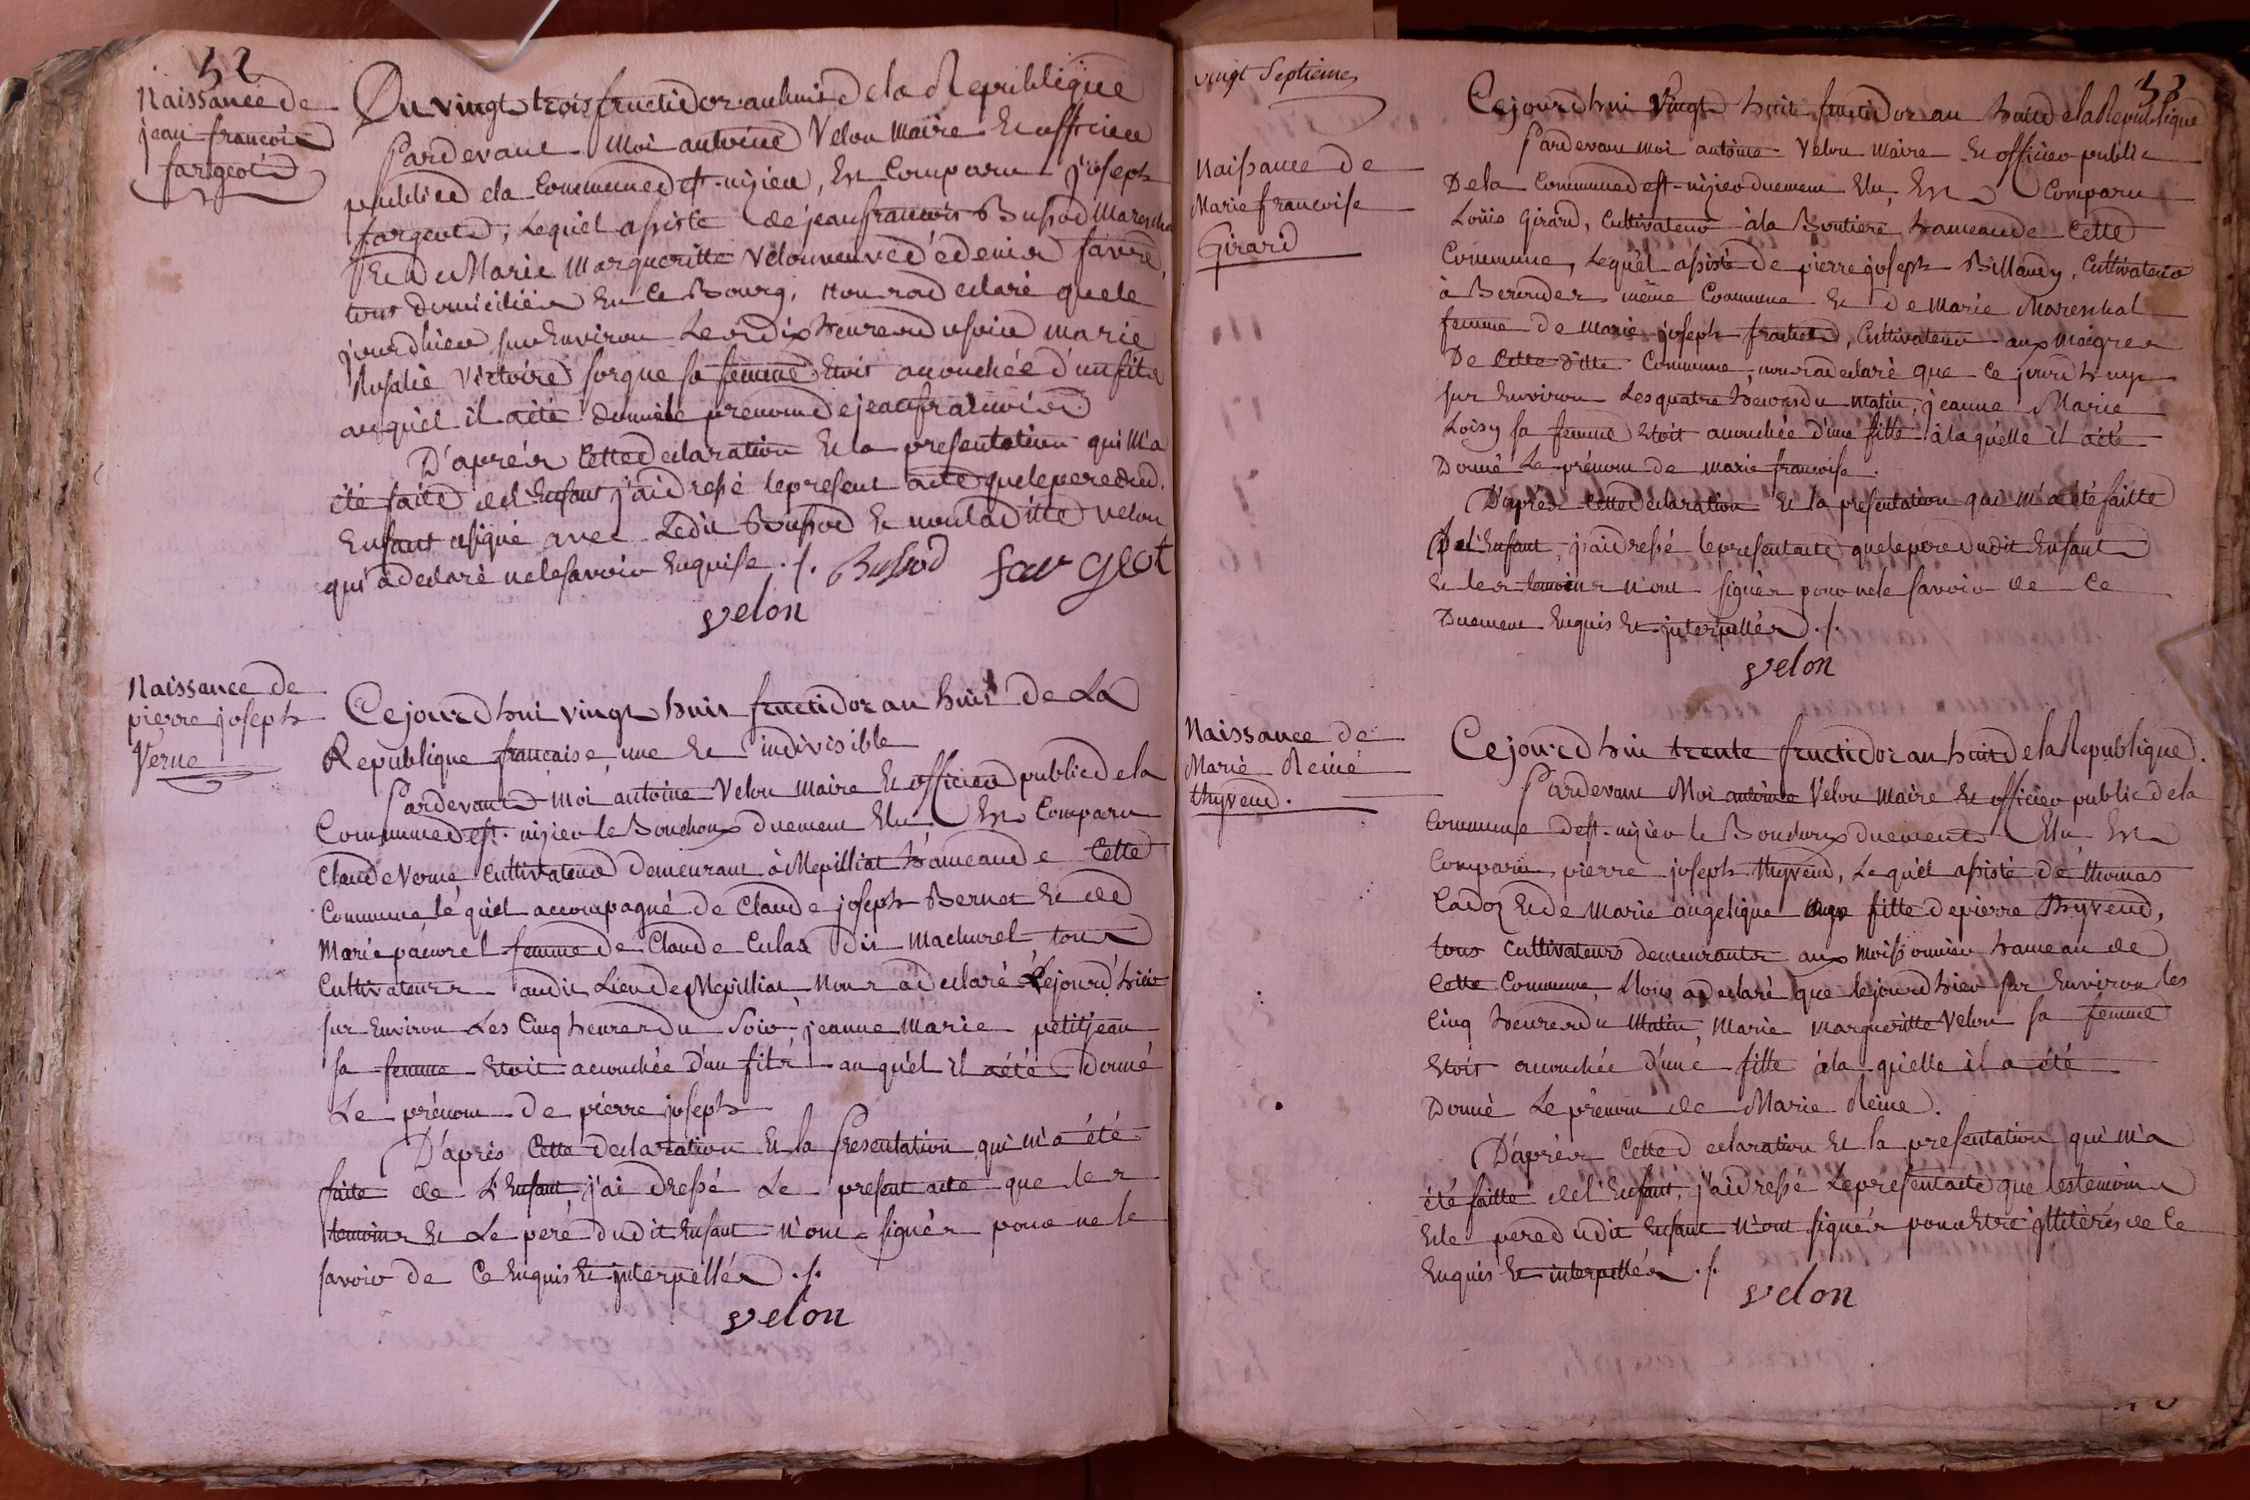 52
Naissance de
jean francois
fargeot
Du vingt trois fructidor an huit de la Republique
Pardevant moi antoine Velon Maire Et officier
public de la Commune de st. nizier, Est Comparu joseph
fargeot, Lequel assisté de jean francois Bussod Marechal
Et de Marie Margueritte Velon veuve de denis favre,
tous domiciliés En Ce Bourg, nous a declaré que le
jourdhier sur Environ Les dix heures du soir marie
Rosalie Victoire sorgue sa femme Etoit accouchée d'un fils
auquel il a été donné le prenom de jean francois
D'après Cette declaration Et la presentation qui m'a
été faite de l'Enfant j'ai dressé le present acte que le pere dud.
Enfant a signé avec Ledit Bussod Et non ladite velon
qui a declaré ne le savoir Enquise ./. Bussod fargeot
velon
Naissance de
pierre joseph
Verne
Cejourdhui vingt huit fructidor an huit de La
Republique française une Et indivisible
Pardevant Moi antoine Velon Maire Et officier public de la
Commune de st. nizier le Bouchoux duement Elu Est Comparu
Claude Verne Cultivateur demeurant à Mepilliat hameau de Cette
Commune le quel accompagné de Claude joseph Bernet Et de
Marie pauvrel femme de Claude Culas dit Machurel tous
Cultivateurs audit Lieu de Mepilliat, Nous a declaré Lejourd'hier
sur Environ Les Cinq heures du Soir jeanne marie petitjean
sa femme Etoit accouchée d'un fils auquel il a été Donné
Le prénom de pierre joseph
D'après Cette declaration Et la Presentation qui m'a été
faite de L'Enfant, j'ai dressé Le present acte que les
temoins Et Le peré dudit Enfant n'ont signés pour ne le
savoir de Ce Enquis Et interpellés ./.
velon
vingt Septieme
Naissance de
Marie francoise
Girard
53
Cejourdhui Vingt huit fructidor an huit de la Republique
Pardevant moi antoine Velon Maire Et officier public
De la Commune de st-nizier duement Elu, Est Comparu
Loüis Girard, Cultivateur à la Boutiere hameau de Cette
Commune, Lequel assisté de pierre joseph Billaudy, Cultivateur
à même Commune Et de Marie Mareschal
femme de Marie joseph Cultivateur aux Maigres
De Cette ditte Commune, nous a declaré que Ce jourd'huy
sur Environ Les quatre heures du matin, jeanne Marie
Loisy sa femme Etoit accouchée d'une fille à laquelle il a été
Donné Le prénom de marie francoise.
D'après Cette declaration Et la presentation qui m'a été faitte
De l'Enfant, j'ai dressé le present acte que le pere dudit Enfant
Et les temoins n'ont signés pour ne le savoir de Ce
Duement Enquis Et interpellés ./.
velon
Naissance de
Marie Reine
thyvend.
Cejourd'hui trente fructidor an huit de la Republique.
Pardevant Moi antoine Velon Maire Et officier public de la
Commune de st-nizier le Bouchoux duement Elu, Est
Comparu pierre joseph thyvend, Lequel assisté de thomas
Cadoz Et de Marie angelique fille de pierre thyvend,
tous Cultivateurs demeurants aux Moissonnier hameau de
Cette Commune, Nous a declaré que lejourdhier sur Environ les
Cinq heures du Matin, Marie Margueritte Velon sa femme
Etoit accouchée d'une fille à la quelle il a été
Donné Le prénom de Marie Reine.
D'après Cette declaration Et la presentation qui m'a
été faitte de l'Enfant, j'ai dressé Le present acte que les temoins
Et le pere dudit Enfant n'ont signés pour Etre jllitérés de Ce
Enquis Et interpellés ./.
velon